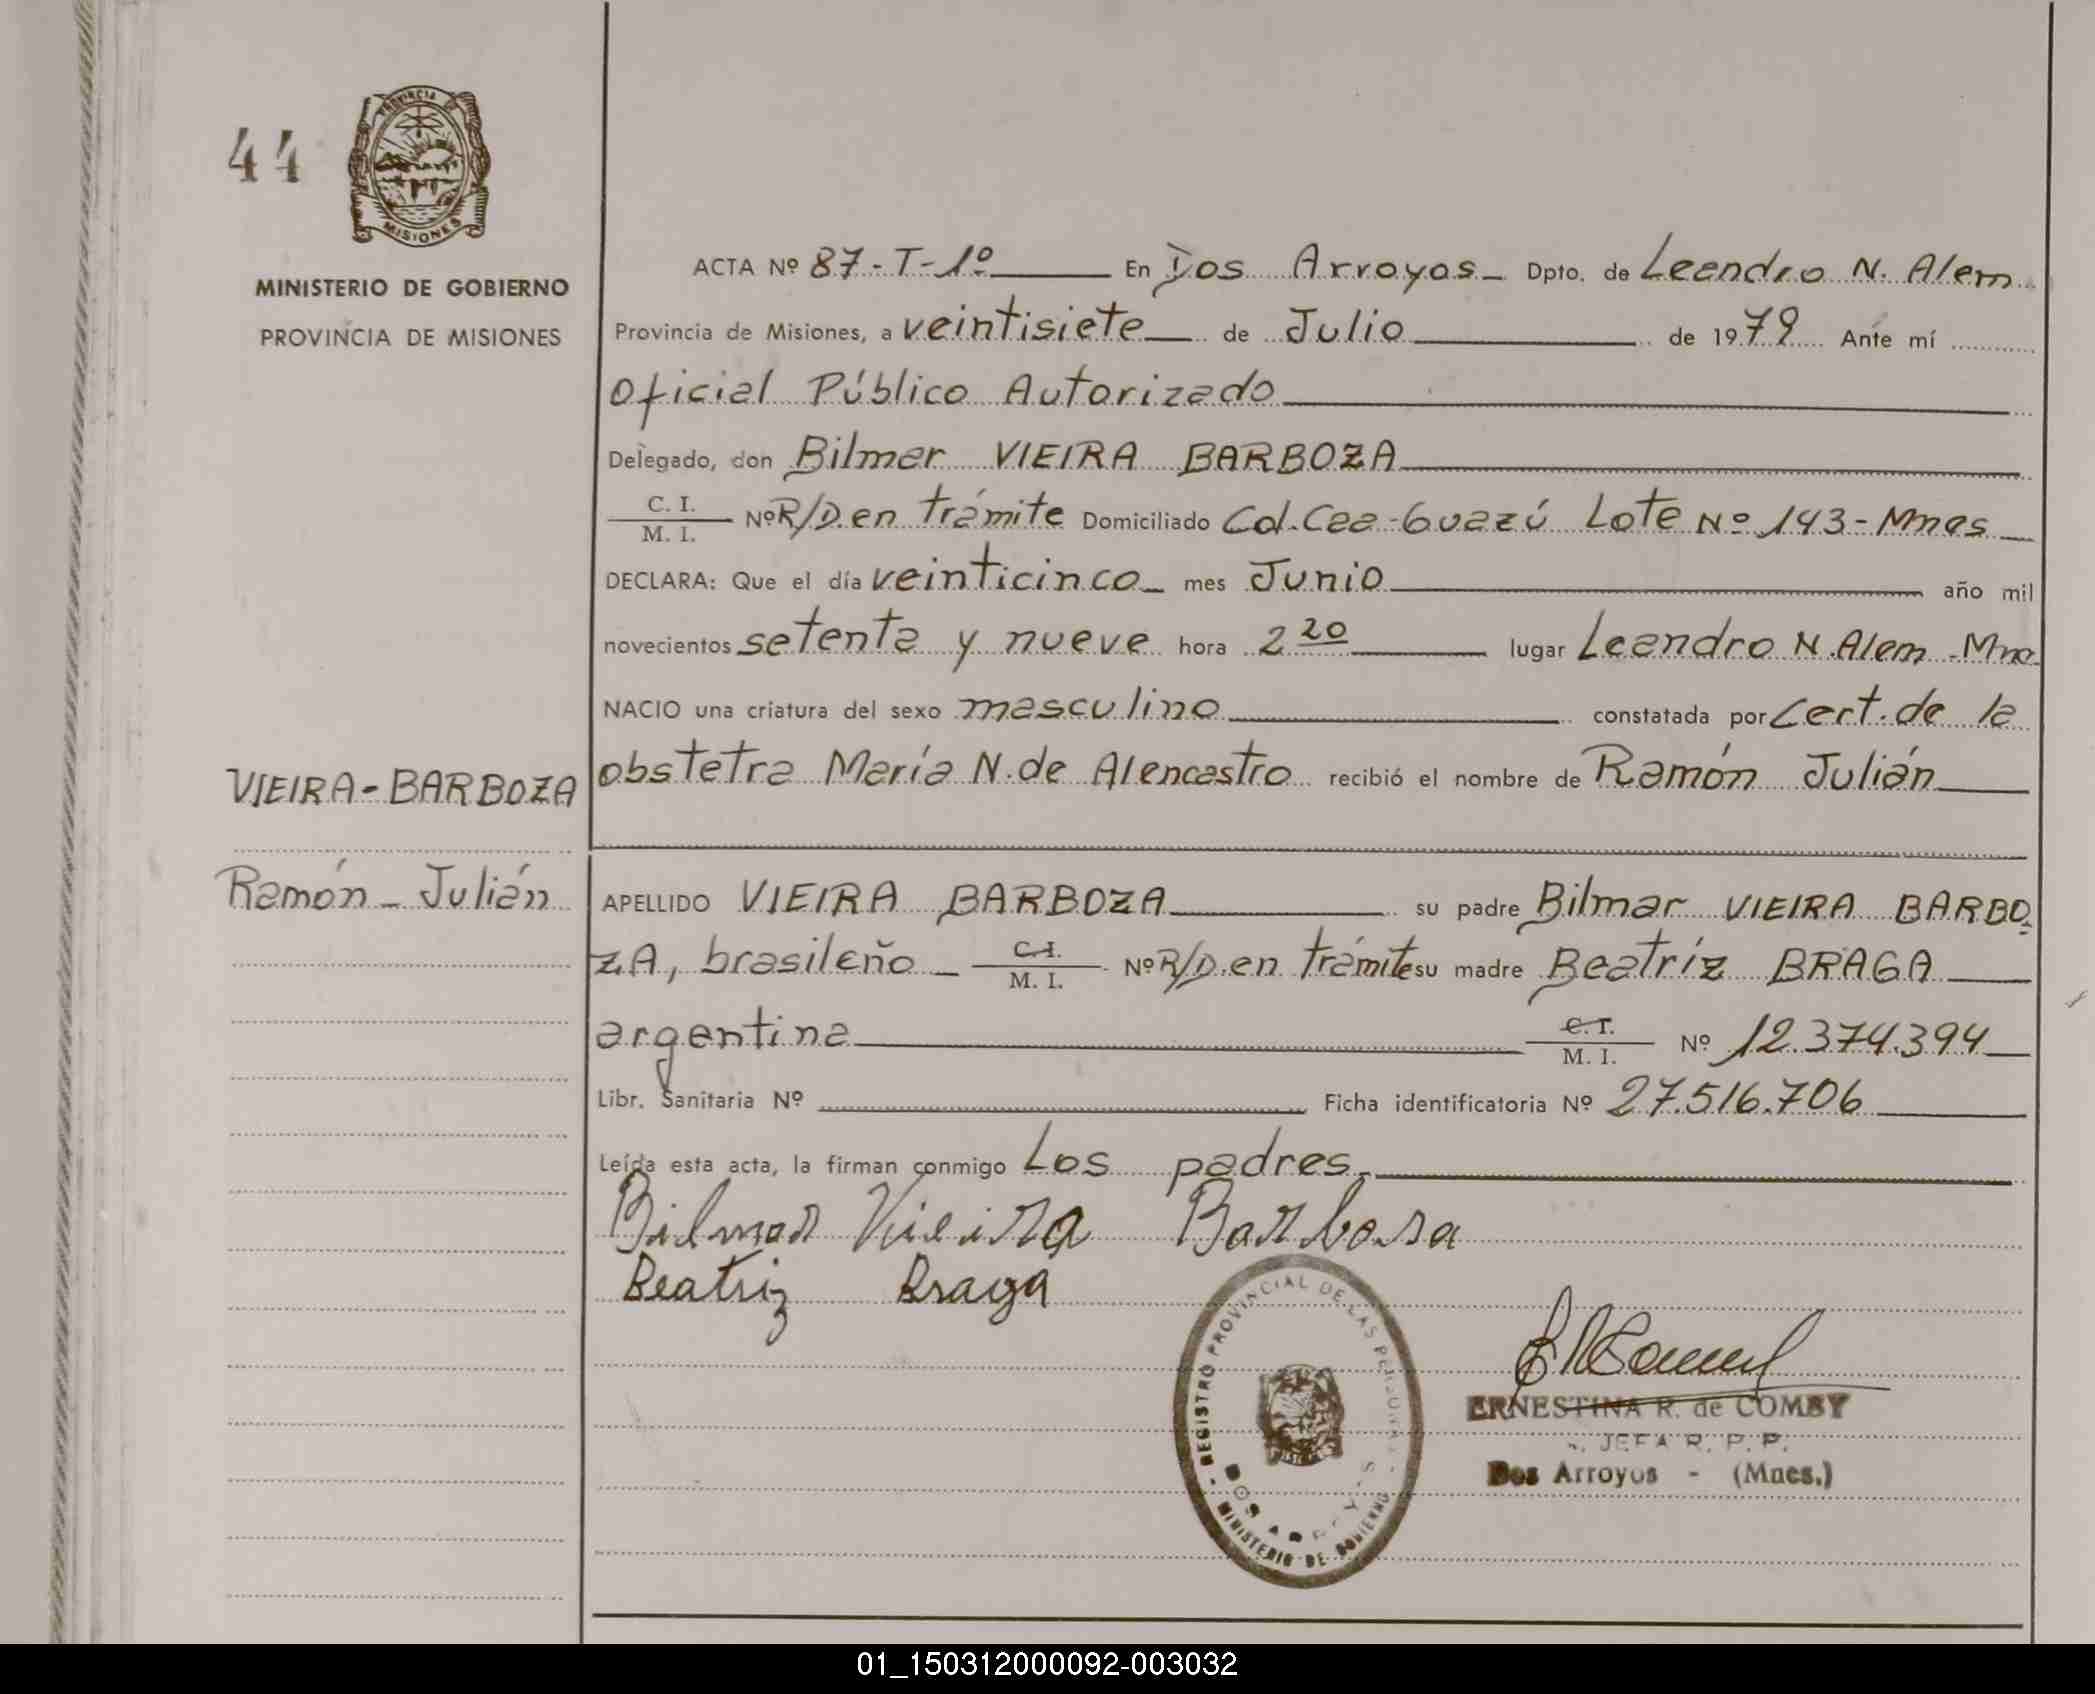 44
PROVINCIA DE
MISIONES
MINISTERIO DE GOBIERNO
PROVINCIA DE MISIONES
ACTA Nº 87-T-1º En Dos Arroyos Dpto. de Leandro N. Alem
Provincia de Misiones, a veintisiete de Julio de 1979 Ante mí
Oficial Público Autorizado
Delegado, don Bilmar VIEIRA BARBOZA
C. I.
M. I. Nº R/D. en trámite Domiciliado Col. Caa-Guazú Lote Nº 143-Mnes
DECLARA: Que el día veinticinco mes Junio año mil
novecientos setenta y nueve hora 2 20 lugar Leandro N. Alem - Mnes
NACIO una criatura del sexo masculino constatada por Cert. de la
obstetra María N. de Alencastro recibió el nombre de Ramón Julián
VIEIRA-BARBOZA
Ramón-Julián
APELLIDO VIEIRA BARBOZA su padre Bilmar VIEIRA BARBO-
ZA, brasileño C. I.
M. I. Nº R/D. en trámite su madre Beatríz BRAGA
argentina C. I.
M. I. Nº 12.374.394
Libr. Sanitaria Nº Ficha identificatoria Nº 27.516.706
Leída esta acta, la firman conmigo Los padres.
Bilmar Vieira Barbosa
Beatriz Braga
REGISTRO PROVINCIAL DE LAS PERSONAS
DOS ARROYOS
MINISTERIO DE GOBIERNO
ERNESTINA R. de COMBY
JEFA R. P. P.
Dos Arroyos - (Mnes.)
01_150312000092-003032